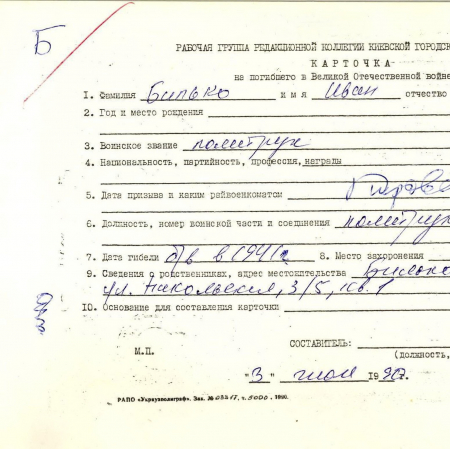 Б
РАБОЧАЯ ГРУППА РЕДАКЦИОННОЙ КОЛЛЕГИИ КИЕВСКОЙ ГОРОДС
КАРТОЧКА
на погибшего в Великой Отечественной войне
1. Фамилия Билько имя Иван отчество
2. Год и место рождения
3. Воинское звание политрук
4. Национальность, партийность, профессия, награды
5. Дата призыва и каким райвоенкоматом
6. Должность, номер воинской части и соединения политрук
7. Дата гибели б/в в 1941г. 8. Место захоронения
9. Сведения о родственниках, адрес местожительства Билько
ул. Никольская, 3/5, кв. 1
10. Основание для составления карточки
СОСТАВИТЕЛЬ:
М.П. (должность,
"3" июля 1990г.
РАПО «Укрвузполиграф». Зак. № т. 5000. 1990.